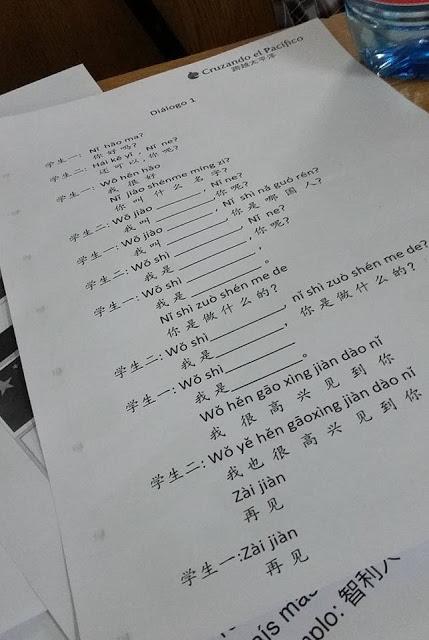 Cruzando el Pacífico
跨越太平洋
Diálogo 1
学生一: Nǐ hǎo ma?
你好吗?
学生二: Hái kě yǐ, Nǐ ne?
还可以, 你呢?
学生一: Wǒ hěn hǎo
我很好
Nǐ jiào shénme míng zi?
你叫什么名字?
学生二: Wǒ jiào ________, Nǐ ne?
我叫 ________, 你呢?
学生一: Wǒ jiào ________, Nǐ shì nǎ guó rén?
我叫 ________, 你是哪国人?
学生二: Wǒ shì ________, Nǐ ne?
我是 ________, 你呢?
学生一: Wǒ shì ________,
我是 ________。
Nǐ shì zuò shén me de
你是做什么的?
学生二: Wǒ shì ________, nǐ shì zuò shén me de?
我是 ________, 你是做什么的?
学生一: Wǒ shì ________.
我是 ________。
Wǒ hěn gāo xìng jiàn dào nǐ
我很高兴见到你
学生二: Wǒ yě hěn gāoxìng jiàn dào nǐ
我也很高兴见到你
Zài jiàn
再见
学生一:Zài jiàn
再见